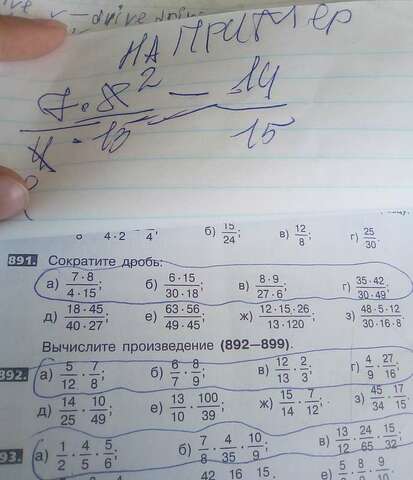 drive
НАПРИМЕР
7·8 2 — 14
4 · 15 15
4·2 4; б) 15/24; в) 12/8; г) 25/30.
891. Сократите дробь:
а) 7·8/4·15; б) 6·15/30·18; в) 8·9/27·6; г) 35·42/30·49;
д) 18·45/40·27; е) 63·56/49·45; ж) 12·15·26/13·120; з) 48·5·12/30·16·8.
Вычислите произведение (892—899).
892. а) 5/12 · 7/8; б) 6/7 · 8/9; в) 12/13 · 2/3; г) 4/9 · 27/16;
д) 14/25 · 10/49; е) 13/10 · 100/39; ж) 15/14 · 7/12; з) 45/34 · 17/15.
93. а) 1/2 · 4/5 · 5/6; б) 7/8 · 4/35 · 10/9; в) 13/24 · 24/65 · 15/32;
42 16 15 е) 5/9 · 8/8 · 9/10